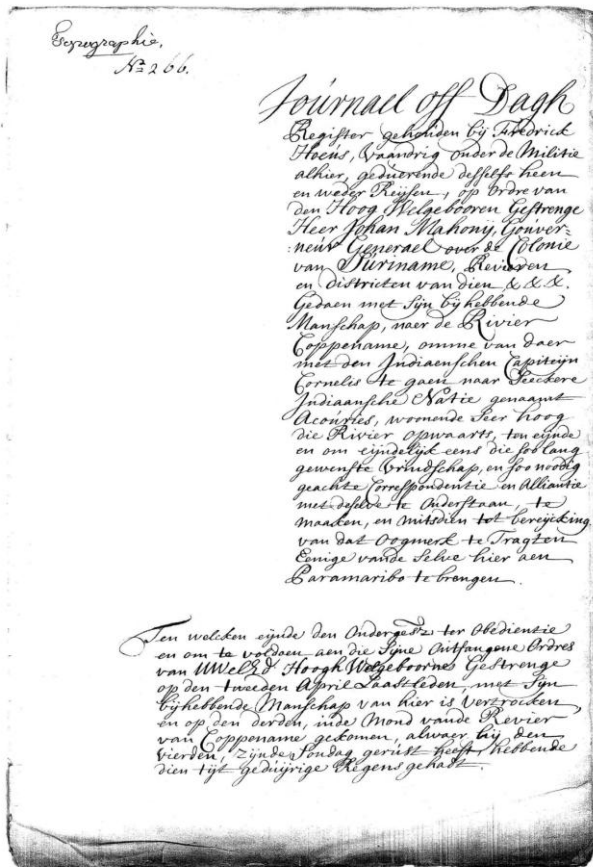 Topographie.
No 266.
Journael off Dagh
Register gehouden bij Fredrick
Hoeùs, Vaandrig onder de Militie
alhier, geduerende desselfs heen
en weder Reijsen, op ordre van
den Hoog Welgebooren Gestrenge
Heer Johan Mahonij, Gouver=
=neùr Generael over de Colonie
van Sùriname, Revieren
en districten van dien &&&.
Gedaen met sijn bij hebbende
Manschap, naer de Rivier
Coppename, omme van daer
met den Indiaenschen Capiteijn
Cornelis te gaen naar Seeckere
Indiaansche Natie genaamt
Acoùries, woonende seer hoog
die Rivier opwaarts, ten eijnde
en om eijndelijk eens die soo lang
gewenste vrindschap, en soo noodig
geachte Correspondentie en Alliantie
met deselve te onderstaan, te
maaken, en mitsdien tot bereijcking
van dat oogmerk te Tragten
Eenige vande selve hier aen
Paramaribo te brengen.
Ten welcken eijnde den Onderget ter obedientie
en om te voldoen aen die sijne ontfangene ordres
van UWelEd Hoogh Welgeboornes Gestrenge
op den tweeden April Laastleden, met sijn
bijhebbende Manschap van hier is vertrocken,
en op den derden, inde Mond vande Revier
van Coppename gekomen, alwaer hij den
vierden, zijnde Sondag gerùst heeft, hebbende
dien tijt gedùijrige Regens gehadt.